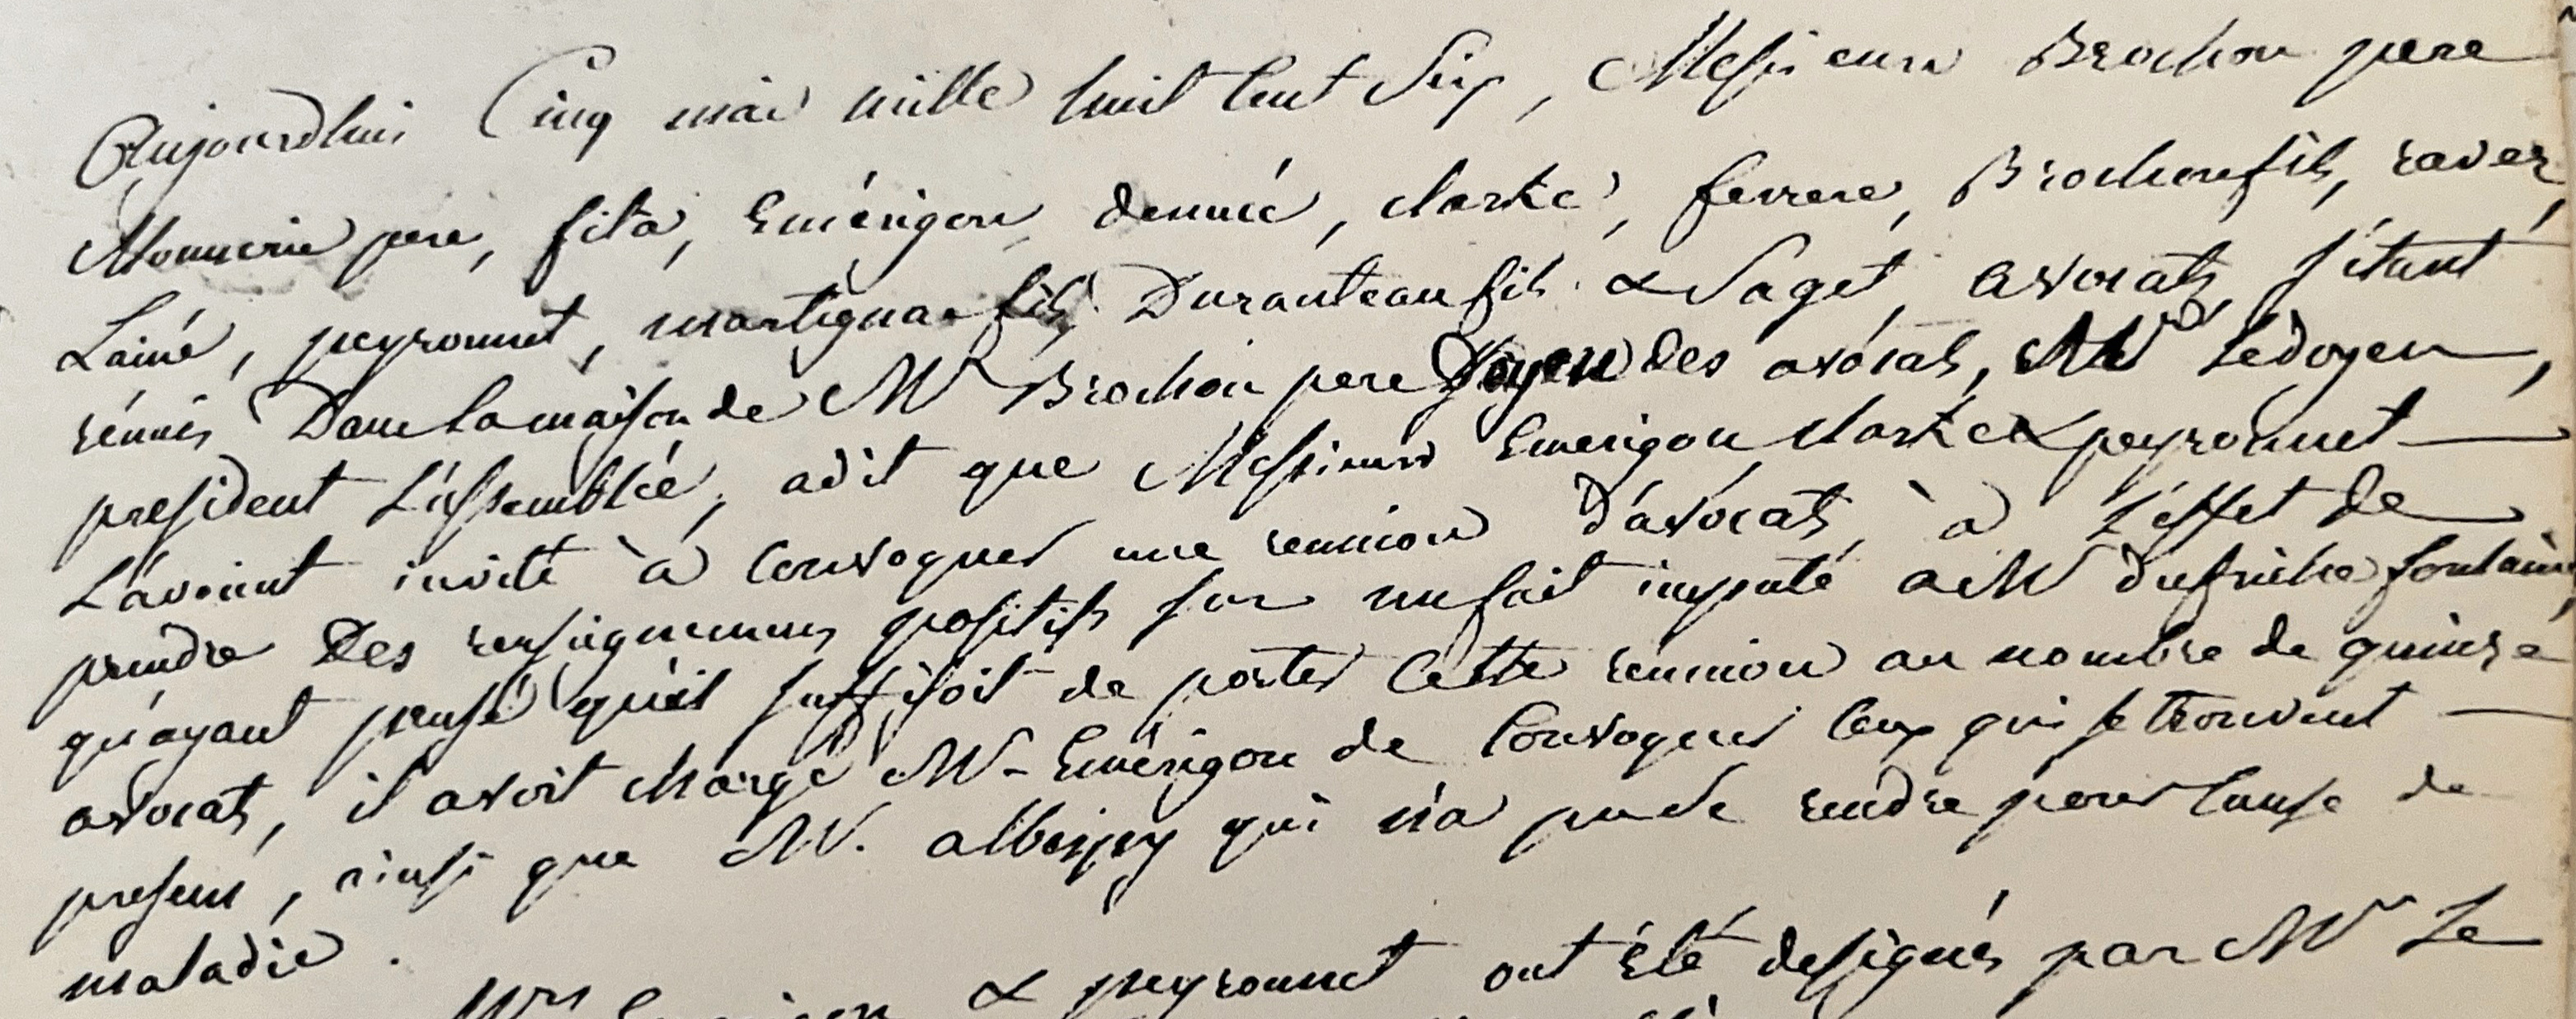 Aujourdhui Cinq mai mille huit Cent Six, Messieurs Brochon pere
Monnerie pere, fita, Emérigon, denucé, clarke, ferrere, Brochon fils, ravez,
Lainé, peyronnet, martignac fils, Duranteau fils & Saget, avocats, s'étant
réunis Dans La maison de Mr Brochon pere Doyen des avocats, Mr Le doyen,
president L'assemblée, a dit que Messieurs Emerigon, clarke & peyronnet
L'avoient invité à Convoquer une reunion d'avocats, à L'effet de
prendre Des renseignemens positifs sur un fait imputé a Mr dufriche fontaine,
qu'ayant pensé qu'il suffisoit de porter Cette réunion au nombre de quinze
avocats, il avoit chargé Mr Emérigon de Convoquer Ceux qui se trouvent
presens, ainsi que Mr. albespy qui n'a pu se rendre pour Cause de
maladie.
Mrs Emerigon & peyronnet ont été designés par Mr Le